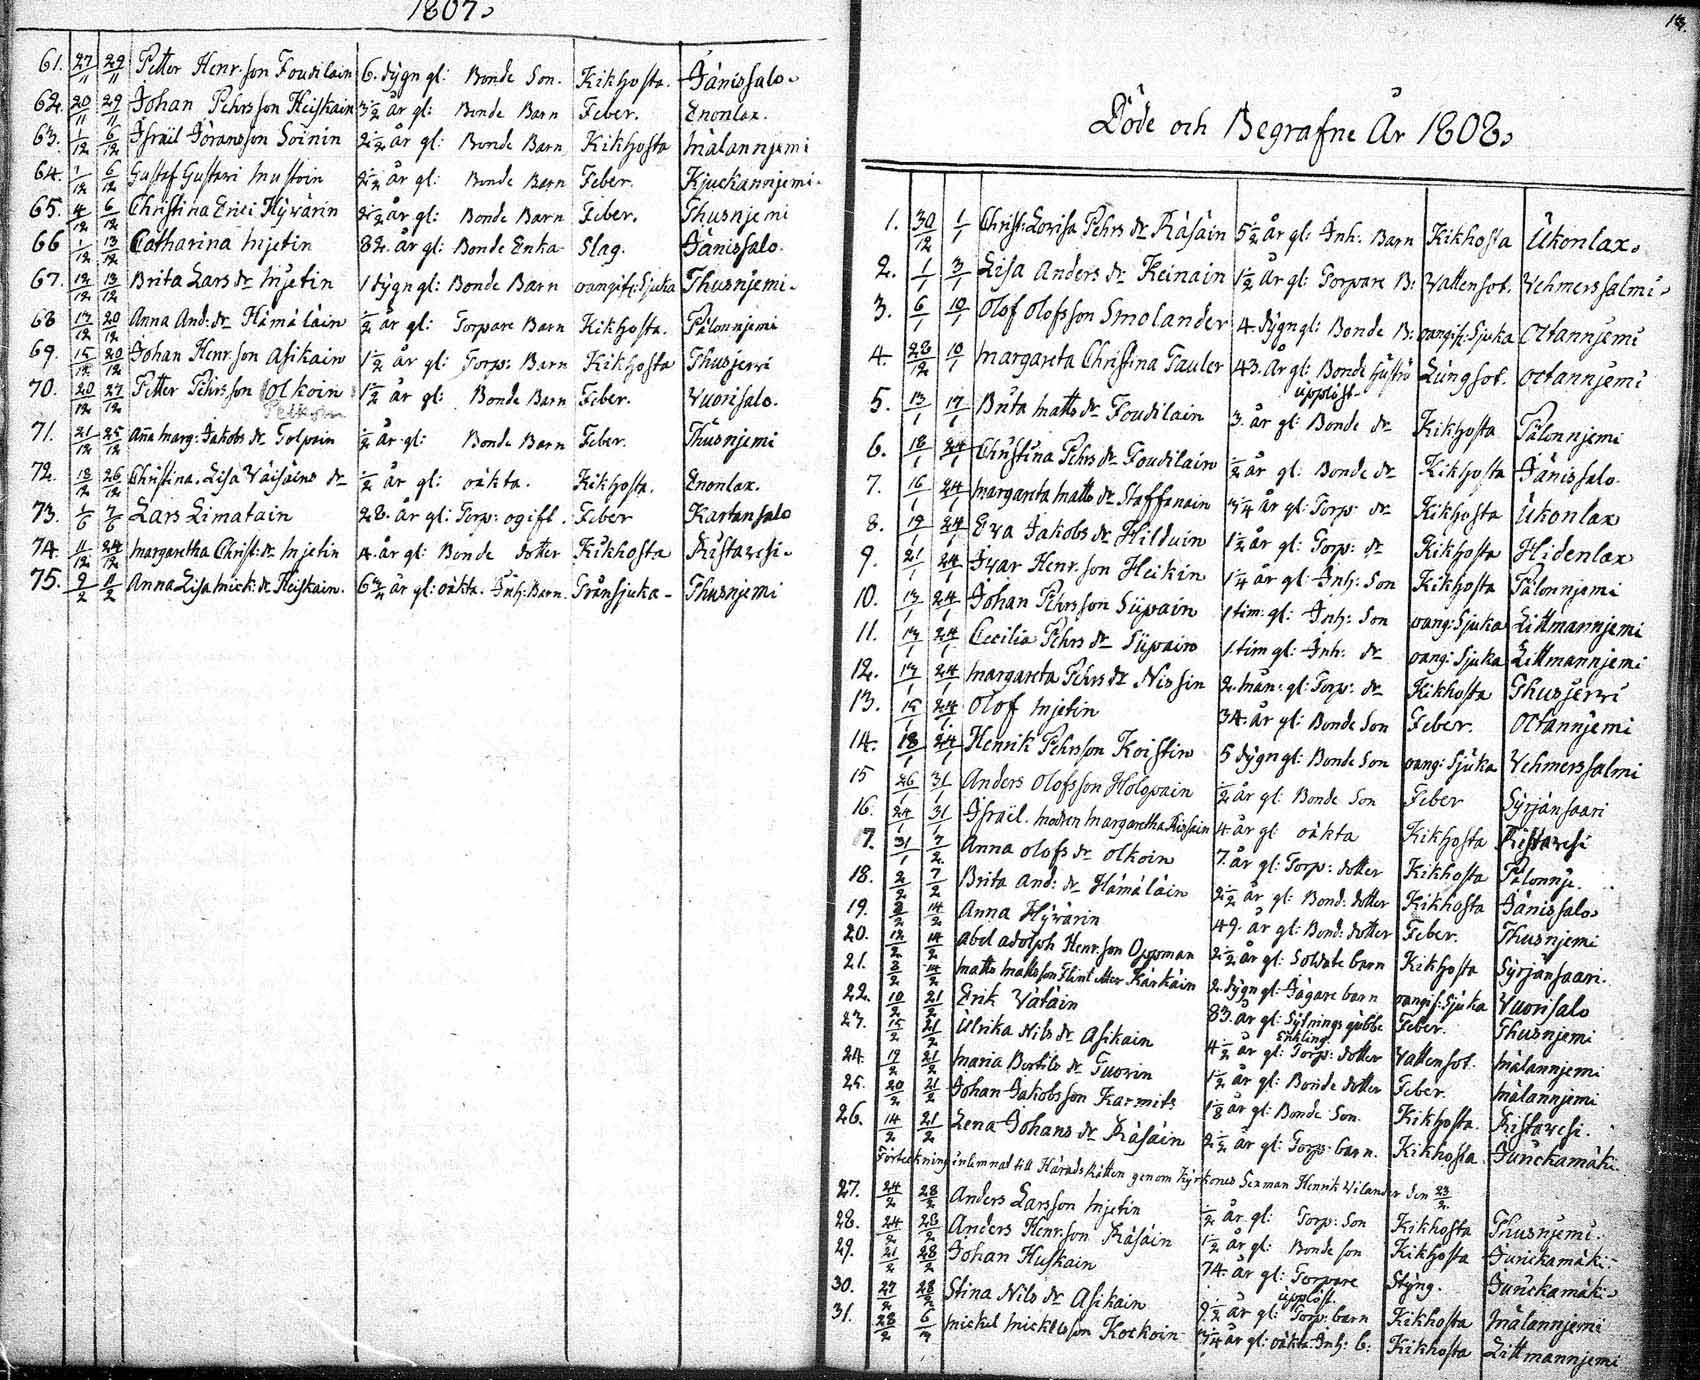 1807.
61. 27/11 29/11 Petter Henr:son Foudilain 6. dygn gl: Bonde Son. Kikhosta. Jänissalo.
62. 20/11 29/11 Johan Pehrsson Heiskain 3 1/2 år gl: Bonde Barn Feber. Enonlax.
63. 1/12 6/12 Israël Göransson Soinin 2 1/2 år gl: Bonde Barn Kikhosta Mälannjemi
64. 1/12 6/12 Gustaf Gustavi Mustoin 2 1/2 år gl: Bonde Barn Feber. Kjuckannjemi.
65. 4/12 6/12 Christina Erici Hyvärin 2 1/2 år gl: Bonde Barn Feber. Thusnjemi
66 1/12 13/12 Catharina Mjetin 82. år gl: Bonde Enka Slag. Jänissalo.
67. 12/12 13/12 Brita Lars dr Mjetin 1 dygn gl: Bonde Barn oangifv: Sjuka Thusnjemi.
68 13/12 20/12 Anna And: dr Hämäläin 1/2 år gl: Torpare Barn Kikhosta. Pälonnjemi
69. 15/12 20/12 Johan Henr:son Asikain 1 1/2 år gl: Torp: Barn Kikhosta Thusjerfvi
70. 20/12 27/12 Petter Pehrsson Olkoin 1 1/2 år gl: Bonde Barn Feber. Vuorisalo.
71. 21/12 25/12 Aña Marg: Jakobs dr Tolpain 1/2 år gl: Bonde Barn Feber. Thusnjemi
72. 18/12 26/12 Christina. Lisa Väisäins dr 1/2 år gl: oäkta. Kikhosta. Enonlax.
73. 1/6 7/6 Lars Limatain 28. år gl: Torp: ogift. Feber Kartansalo
74. 11/12 24/12 Margaretha Christ: dr Mjetin 4. år gl: Bonde dotter Kikhosta Ristavesi.
75. 9/2 11/2 Anna Lisa Mick: dr Heiskain. 6 3/4 år gl: oäkta. Inh: Barn. Trånsjuka Thusnjemi
13.
Döde och Begrafne År 1808.
1. 30/12 1/1 Christ: Lovisa Pehrs dr Räsäin 5 1/2 år gl: Inh: Barn Kikhosta Ukonlax.
2. 1/1 3/1 Lisa Anders dr Keinain 1 1/2 år gl: Torpare B: Vattensot. Vehmerssalmi.
3. 6/1 10/1 Olof Olofsson Smolander 4. dygn gl: Bonde B: oangif: Sjuka Octannjemi
4. 28/12 10/1 Margareta Christina Tauler 43. år gl: Bonde Hustru Lungsot. Octannjemi
upplöst.
5. 13/1 17/1 Brita Matts dr Foudilain 3. år gl: Bonde dr Kikhosta Pälonnjemi
6. 18/1 24/1 Christina Pehrs dr Foudilain 1/2 år gl: Bonde dr Kikhosta Jänissalo.
7. 16/1 24/1 Margareta Matts dr Staffanain 3/4 år gl: Torp: dr Kikhosta Ukonlax
8. 19/1 24/1 Eva Jakobs dr Hilduin 1 1/2 år gl: Torp: dr Kikhosta Hidenlax
9. 21/1 24/1 Ivar Henr:son Heikin 1 1/4 år gl: Inh: Son Kikhosta Pälonnjemi
10. 13/1 24/1 Johan Pehrsson Siipain 1 tim: gl: Inh: Son oang: Sjuka Littmannjemi
11. 13/1 24/1 Cecilia Pehrs dr Siipain 1. tim gl: Inh: dr oang: Sjuka Littmannjemi
12. 17/1 24/1 Margareta Pehrs dr Nissin 2. mån: gl: Torp: dr Kikhosta Thusjerfvi
13. 15/1 24/1 Olof Mjetin 34. år gl: Bonde Son Feber. Octannjemi
14. 18/1 24/1 Henrik Pehrsson Koistin 5 dygn gl: Bonde Son oang: Sjuka Vehmerssalmi
15 26/1 31/1 Anders Olofsson Holopain 1/2 år gl: Bonde Son Feber Syrjänsaari
16. 24/1 31/1 Israël. modren Margaretha Rissain 4 år gl: oäkta Kikhosta Ristavesi
7. 31/1 7/2 Anna Olofs dr Olkoin 7. år gl: Torp: dotter Kikhosta Pälonnje.
18. 2/2 7/2 Brita And: dr Hämäläin 2 1/2 år gl: Bond: dotter Kikhosta Jänissalo.
19. 3/2 14/2 Anna Hyvärin 49. år gl: Bond: dotter Feber. Thusnjemi
20. 12/2 14/2 Abel Adolph Henr:son Oppman 2 1/2 år gl: Soldate barn Kikhosta Syrjänsaari.
21. 3/2 14/2 Matts Mattsson Flint eller Kärkäin 2. dygn gl: Jägare barn oangif: Sjuka Vuorisalo
22. 10/2 21/2 Erik Vätäin 83. år gl: Sytnings gubbe Feber. Thusnjemi
Enkling
23. 15/2 21/2 Ulrika Nils dr Asikain 4 1/2 år gl: Torp: dotter Vattensot. Mälannjemi
24. 19/2 21/2 Maria Bertils dr Tuorin 1 1/2 år gl: Bonde dotter Feber. Mälannjemi
25. 20/2 21/2 Johan Jakobsson Karmits 1 1/8 år gl: Bonde Son. Kikhosta. Ristavesi.
26. 14/2 21/2 Lena Johans dr Räsäin 2 1/2 år gl: Torp: barn. Kikhosta Junckamäki
Förteckning inlemnad till Härads Rätten genom Kyrkones Lenman Henrik Vilander den 23/2.
27. 24/2 28/2 Anders Larsson Mjetin 1/2 år gl: Torp: Son Kikhosta Thusnjemi.
28. 24/2 28/2 Anders Henr:son Räsäin 1 1/2 år gl: Bonde son Kikhosta Junckamäki.
29. 21/2 28/2 Johan Huskain 74. år gl: Torpare Styng. Junckamäki.
upplöst.
30. 27/2 28/2 Stina Nils dr Asikain 9 1/2 år gl: Torp: barn Kikhosta Mälannjemi
31. 28/2 6/3 Mickel Mickelsson Kockoin 3/4 år gl: oäkta: Inh: b: Kikhosta Littmannjemi